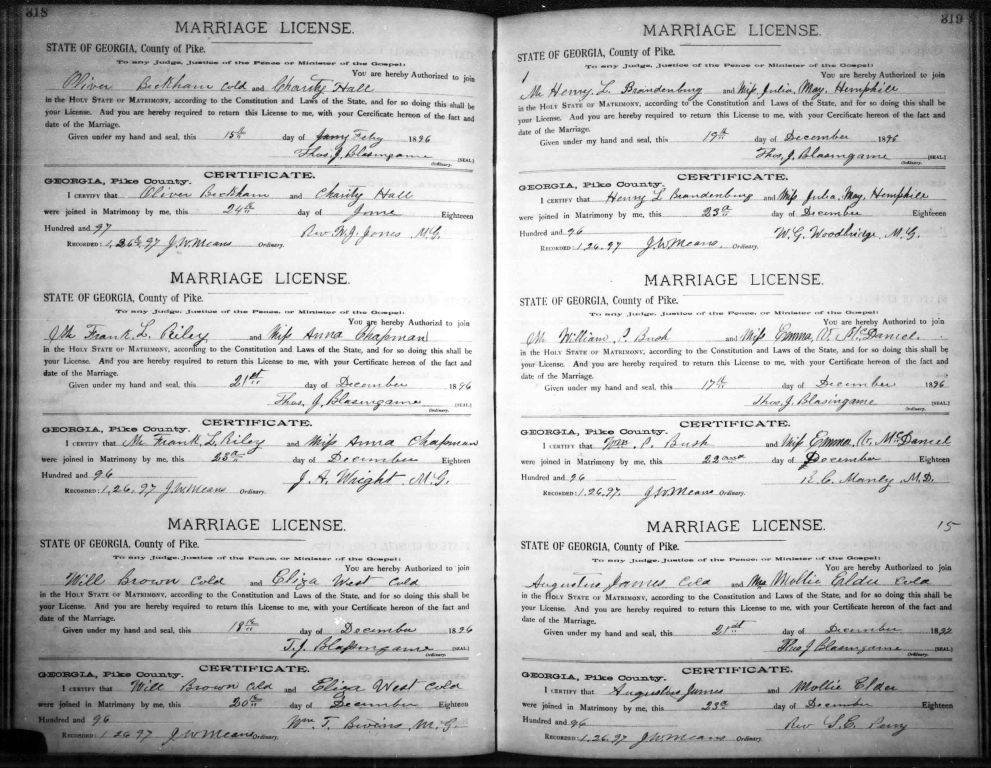 318
MARRIAGE LICENSE.
STATE OF GEORGIA, County of Pike.
To any Judge, Justice of the Peace or Minister of the Gospel:
You are hereby Authorized to join
Oliver Beckham Cold and Charity Hall
in the HOLY STATE OF MATRIMONY, according to the Constitution and Laws of the State, and for so doing this shall be
your License. And you are hereby required to return this License to me, with your Certificate hereon of the fact and
date of the Marriage.
Given under my hand and seal, this 15th day of Feby 1896
Thos. J. Blasingame (SEAL)
Ordinary.
CERTIFICATE.
GEORGIA, Pike County.
I CERTIFY that Oliver Beckham and Charity Hall
were joined in Matrimony by me, this 24th day of Eighteen
Hundred and 97 Rev W. J. Jones M.G.
RECORDED: 1,26,97 J.W. Means Ordinary.
MARRIAGE LICENSE.
STATE OF GEORGIA, County of Pike.
To any Judge, Justice of the Peace, or Minister of the Gospel:
You are hereby Authorized to join
Mr Frank L. Riley and Miss Anna Chapman
in the HOLY STATE OF MATRIMONY, according to the Constitution and Laws of the State, and for so doing this shall be
your License. And you are hereby required to return this License to me, with your Certificate hereon of the fact and
date of the Marriage.
Given under my hand and seal, this 21st day of December 1896
Thos. J. Blasingame
Ordinary.
CERTIFICATE.
GEORGIA, Pike County.
I CERTIFY that Mr Frank L. Riley and Miss Anna Chapman
were joined in Matrimony by me, this 23d day of December Eighteen
Hundred and 96 J. A. Wright M.G.
RECORDED: 1,26,97 J.W. Means Ordinary.
MARRIAGE LICENSE.
STATE OF GEORGIA, County of Pike.
To any Judge, Justice of the Peace, or Minister of the Gospel:
You are hereby Authorized to join
Will Brown Cold and Eliza West Cold
in the HOLY STATE OF MATRIMONY, according to the Constitution and Laws of the State, and for so doing this shall be
your License. And you are hereby required to return this License to me, with your Certificate hereon of the fact and
date of the Marriage.
Given under my hand and seal, this 18th day of December 1896
T. J. Blasingame (SEAL)
Ordinary.
CERTIFICATE.
GEORGIA, Pike County.
I CERTIFY that Will Brown Cold and Eliza West Cold
were joined in Matrimony by me, this 20th day of December Eighteen
Hundred and 96 Wm. T. Bivins M.G.
RECORDED: 1 26 97 J W Means Ordinary.
319
MARRIAGE LICENSE.
STATE OF GEORGIA, County of Pike.
To any Judge, Justice of the Peace or Minister of the Gospel:
1 You are hereby Authorized to join
Mr Henry L. Brandenburg and Miss Julia May Hemphill
in the HOLY STATE OF MATRIMONY, according to the Constitution and Laws of the State, and for so doing this shall be
your License. And you are hereby required to return this License to me, with your Certificate hereon of the fact and
date of the Marriage.
Given under my hand and seal, this 19th day of December 1896
Thos. J. Blasingame (SEAL)
Ordinary.
CERTIFICATE.
GEORGIA, Pike County.
I CERTIFY that Henry L Brandenburg and Miss Julia May Hemphill
were joined in Matrimony by me, this 23d day of December Eighteen
Hundred and 96 W. G. Woodbridge M.G.
RECORDED: 1,26,97 J.W. Means. Ordinary.
MARRIAGE LICENSE.
STATE OF GEORGIA, County of Pike.
To any Judge, Justice of the Peace, or Minister of the Gospel:
You are hereby Authorized to join
Mr William P. Bush and Miss Emma V. McDaniel
in the HOLY STATE OF MATRIMONY, according to the Constitution and Laws of the State, and for so doing this shall be
your License. And you are hereby required to return this License to me, with your Certificate hereon of the fact and
date of the Marriage.
Given under my hand and seal, this 17th day of December 1896
Thos. J. Blasingame (SEAL)
Ordinary.
CERTIFICATE.
GEORGIA, Pike County.
I CERTIFY that Wm. P. Bush and Miss Emma V. McDaniel
were joined in Matrimony by me, this 22nd day of December Eighteen
Hundred and 96 Manley
RECORDED: 1,26,97. J.W. Means Ordinary.
MARRIAGE LICENSE. 15
STATE OF GEORGIA, County of Pike.
To any Judge, Justice of the Peace, or Minister of the Gospel:
You are hereby Authorized to join
Augustus James Cold and Mollie Elder Cold
in the HOLY STATE OF MATRIMONY, according to the Constitution and Laws of the State, and for so doing this shall be
your License. And you are hereby required to return this License to me, with your Certificate hereon of the fact and
date of the Marriage.
Given under my hand and seal, this 21st day of December
Thos J Blasingame (SEAL)
Ordinary.
CERTIFICATE.
GEORGIA, Pike County.
I CERTIFY that Augustus James and Mollie Elder
were joined in Matrimony by me, this 23d day of December Eighteen
Hundred and 96 Rev S. C. Perry
RECORDED: 1,26,97 J.W. Means Ordinary.